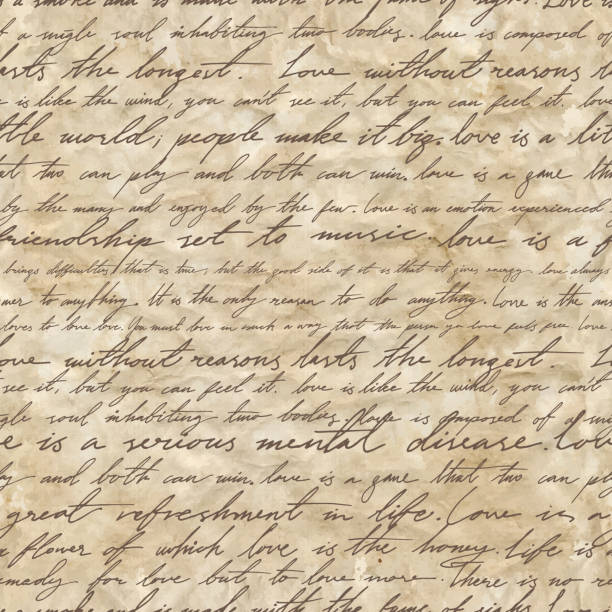 a smoke and is made with the fume of sighs. Love is
a single soul inhabiting two bodies. love is composed of
lasts the longest. Love without reasons
is like the wind, you can't see it, but you can feel it. love
little world; people make it big. love is a lit
at two can play and both can win. love is a game tha
by the many and enjoyed by the few. Love is an emotion experienced
friendship set to music. love is a f
brings difficulties, that is true, but the good side of it is that it gives energy. love always
wer to anything. It is the only reason to do anything. Love is the ans
loves to love love. You must love in such a way that the person you love feels free. Love
love without reasons lasts the longest.
see it, but you can feel it. love is like the wind, you can't
ngle soul inhabiting two bodies. love is composed of a sin
e is a serious mental disease. Love
lay and both can win. love is a game that two can pla
great refreshment in life. Love is a
a flower of which love is the honey. life is
emedy for love but to love more. There is no re
a smoke and is made with the fume of sighs. Love